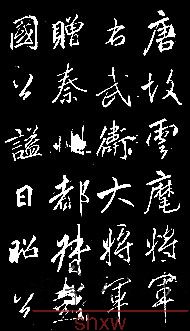 唐故雲麾將軍
右武衛大將軍
贈秦州都督彭
國公謚曰昭公
shxw